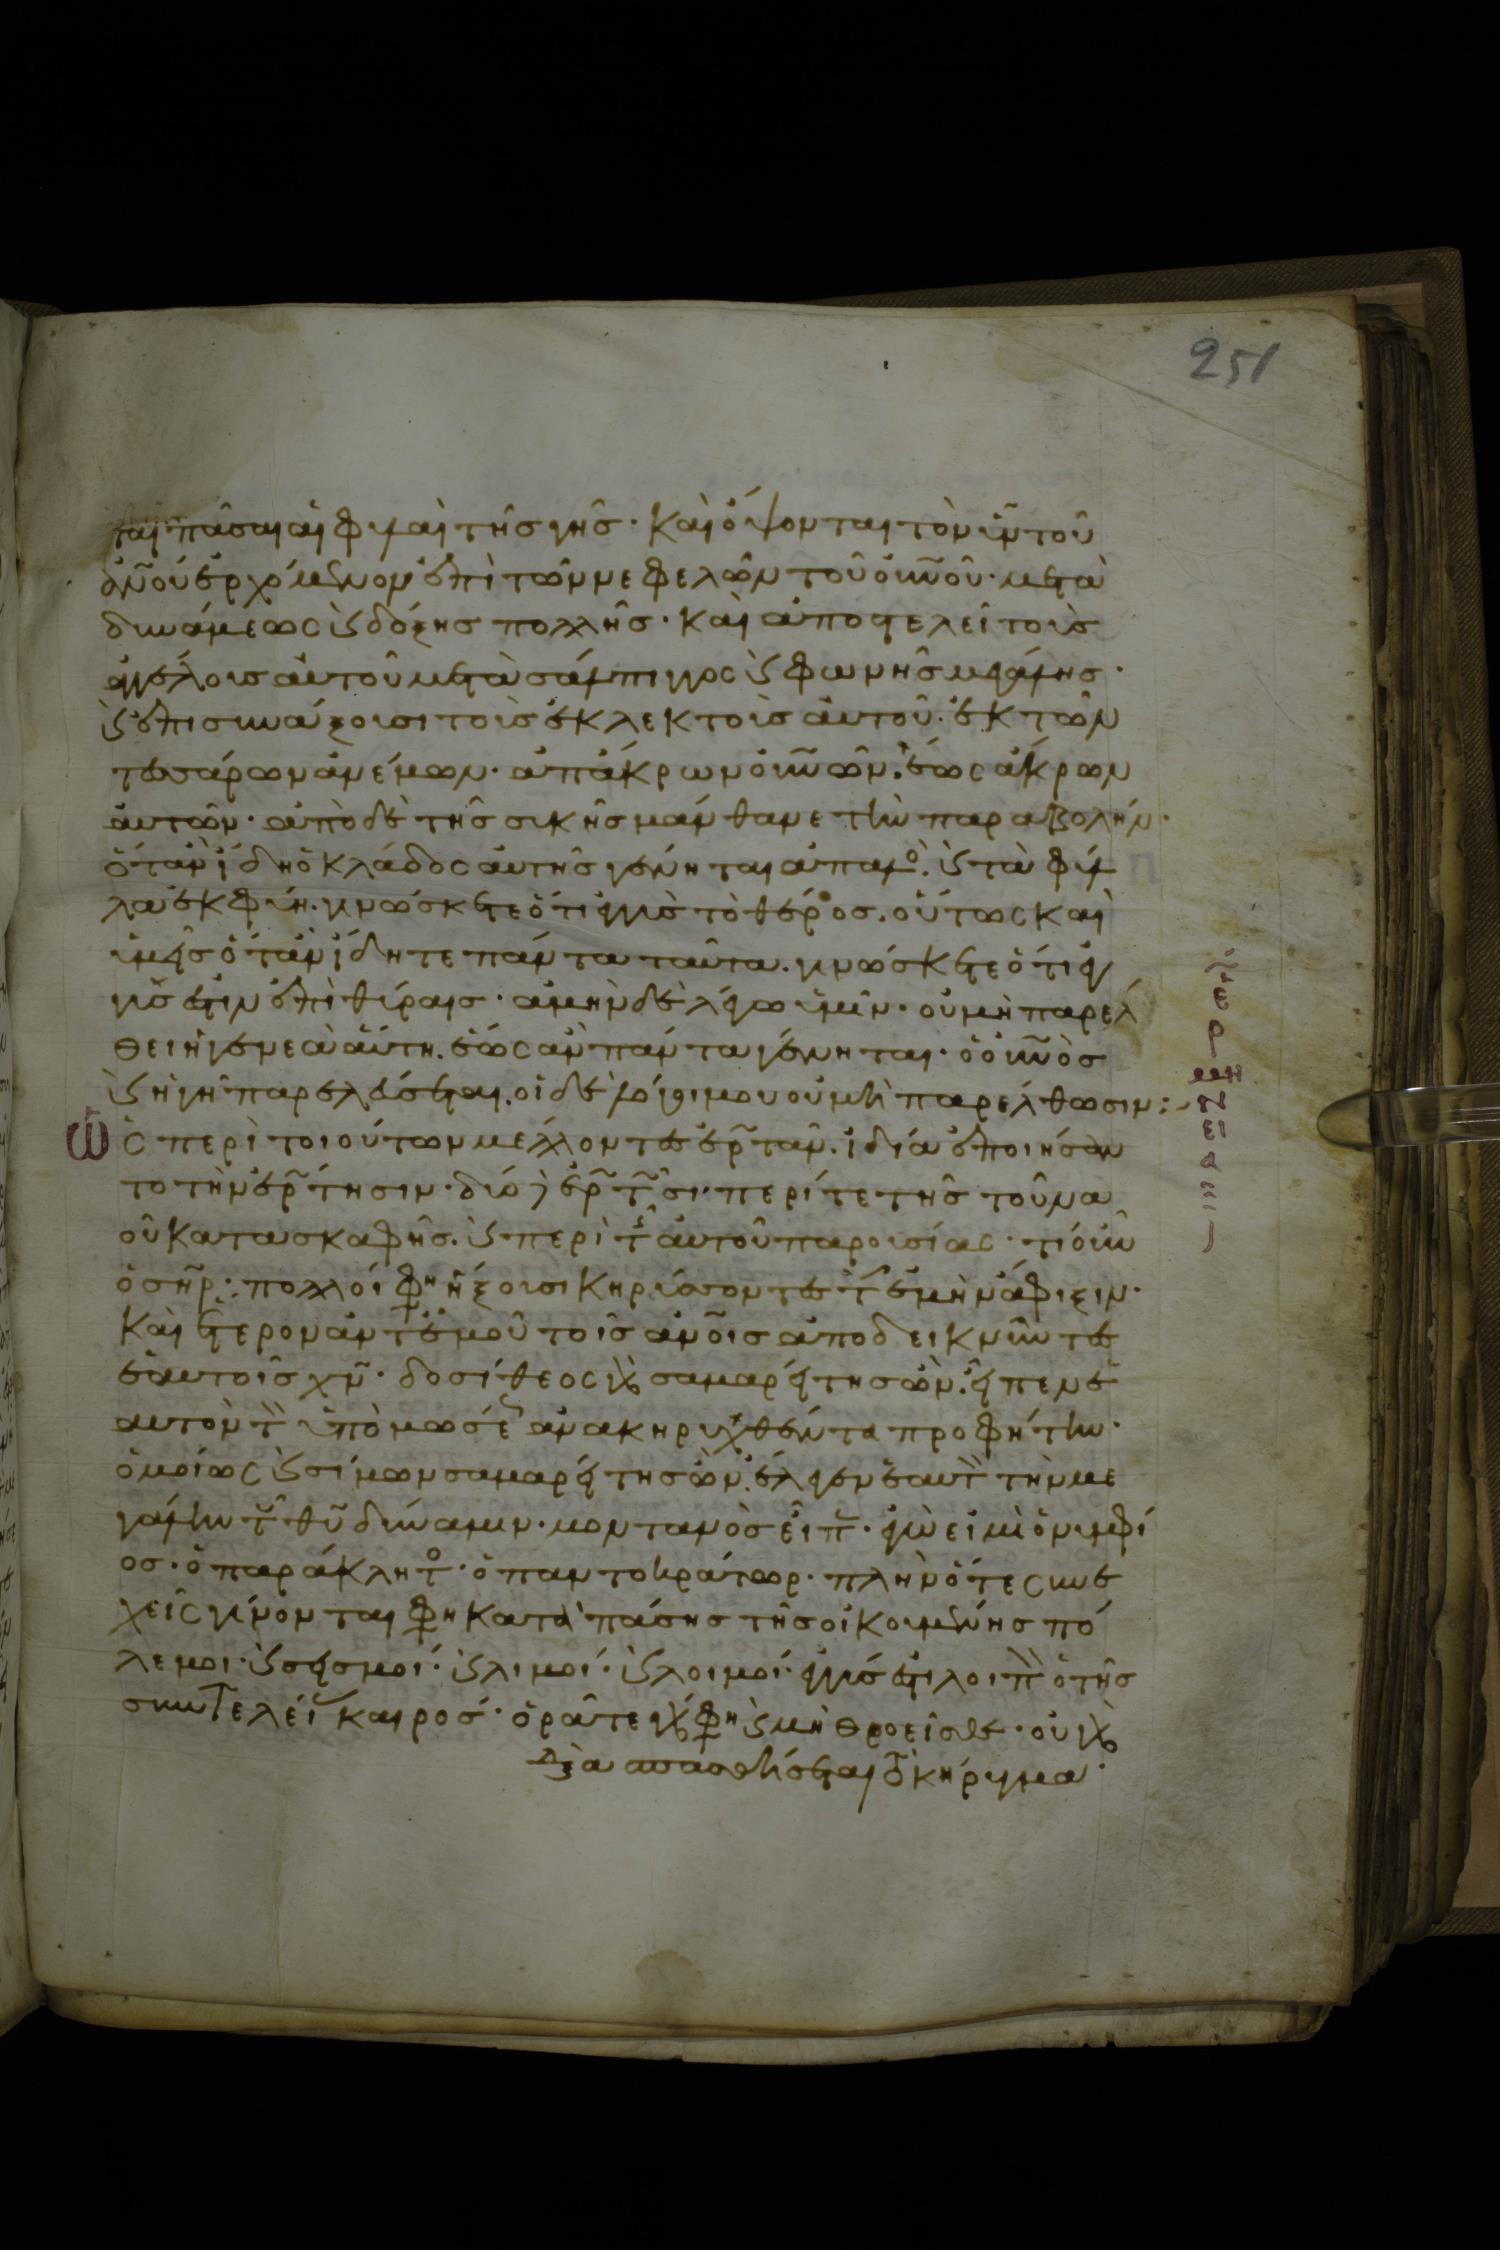 251
ται πᾶσαι αἱ φυλαὶ τῆς γῆς· καὶ ὄψονται τὸν υ̅ν̅ τοῦ
α̅ν̅ο̅υ̅ ἐρχόμενον ἐπὶ τῶν νεφελῶν τοῦ ο̅υ̅ν̅ο̅ῦ̅· μετὰ
δυνάμεως κ(αὶ) δόξης πολλῆς· καὶ ἀποστελεῖ τοὺς
ἀγγέλους αὐτοῦ μετὰ σάλπιγγος κ(αὶ) φωνῆς μεγάλης·
κ(αὶ) ἐπισυνάξουσι τοὺς ἐκλεκτοὺς αὐτοῦ· ἐκ τῶν
τεσσάρων ἀνέμων· ἀπ' ἄκρων ο̅υ̅ν̅ῶν· ἕως ἄκρων
αὐτῶν· ἀπὸ δὲ τῆς συκῆς μάνθανε τὴν παραβολήν·
ὅταν ἤδη ὁ κλάδος αὐτῆς γένηται ἁπαλὸ· κ(αὶ) τὰ φύλ
λα ἐκφύη· γινώσκετε ὅτι ἐγγὺς τὸ θέρος· οὕτως καὶ
ὑμεῖς ὅταν ἴδητε πάντα ταῦτα· γινώσκετε ὅτι ἐγ
γύς ἐστιν ἐπὶ θύραις· ἀμὴν δὲ λέγω ὑμῖν· οὐ μὴ παρέλ
θει ἡ γενεὰ αὕτη· ἕως ἂν πάντα γένηται· ὁ ο̅υ̅ν̅ὸς
κ(αὶ) ἡ γῆ παρελεύσεται· οἱ δὲ λόγοι μου οὐ μὴ παρέλθωσιν:
ὡς περὶ τοιούτων μέλλοντες ἐρωτᾶν· ἰδία ἐποιήσαν
το τὴν ἐρώτησιν· διὸ κ(αὶ) ἐρωτῶσι· περί τε τῆς τοῦ να
οῦ κατασκαφῆς· κ(αὶ) περὶ τῆς αὐτοῦ παρουσίας· τί οὖν
ὁ σ̅η̅ρ̅:· πολλοί φη ἥξουσι κηρύσσοντες τὴν ἐμὴν ἄφιξιν·
καὶ ἕτερον ἀντ' ἐμοῦ τοῖς α̅ν̅ο̅ις ἀποδεικνῦντες
ἑαυτοῖς χ̅ν̅· δοσίθεος γὰρ σαμαρείτης ὢν· εἶπεν ἑ
αυτὸν τὸν ὑπὸ μωσέως ἀνακηρυχθέντα προφήτην·
ὁμοίως κ(αὶ) σίμων σαμαρείτης ὢν· ἔλεγεν ἑαυτὸν τὴν με
γάλην τοῦ θ̅υ̅ δύναμιν· μοντανὸς εἶπεν· ἐγὼ εἰμὶ ὁ νυμφί
ος· ὁ παράκλητος· ὁ παντοκράτωρ· πλὴν ὅτε συνε
χεῖς γίνονται φη κατὰ πάσης τῆς οἰκουμένης πό
λεμοι· κ(αὶ) σεισμοί· κ(αὶ) λιμοί· κ(αὶ) λοιμοί· ἐγγύς ἐστι λοιπὸν ὁ τῆς
συντελείας καιρός· ὁρᾶτε γὰρ φη κ(αὶ) μὴ θροεῖσθε· οὐ γὰρ
διὰ κήρυγμα·